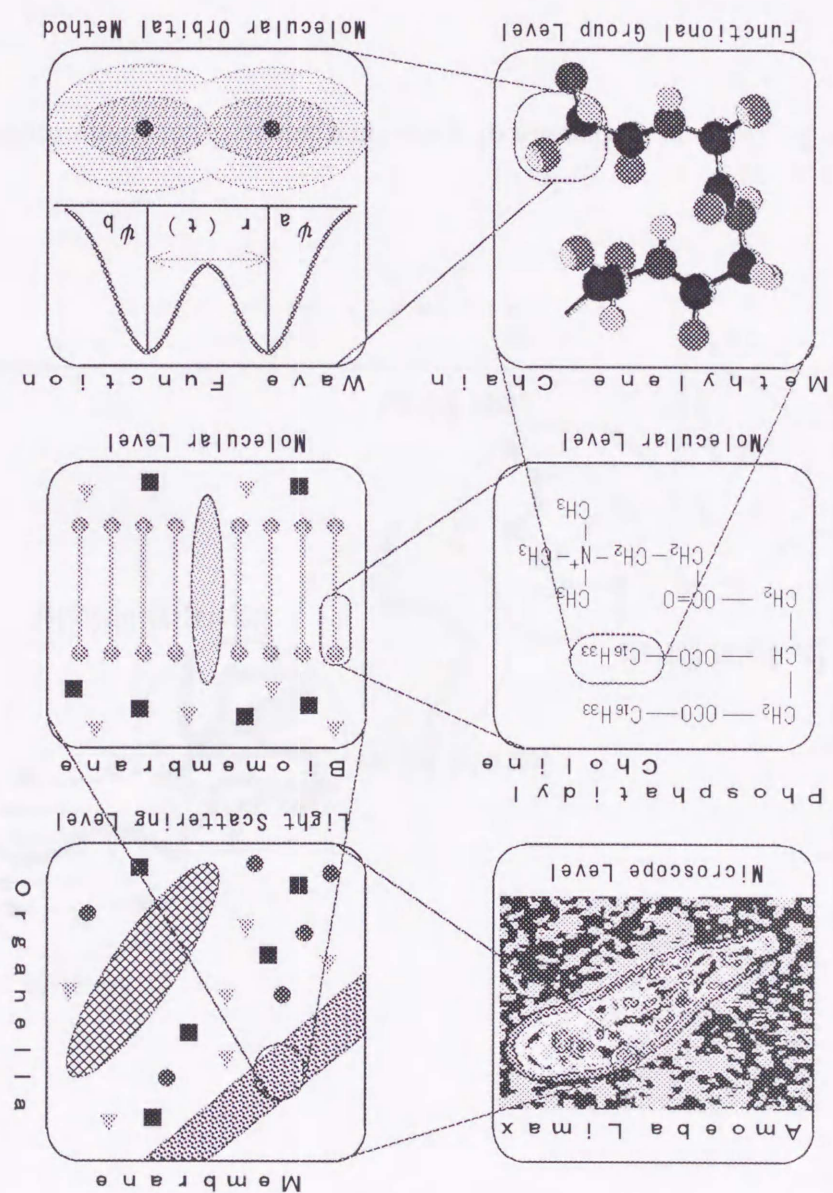 Amoeba Limax
Microscope Level
Membrane
Organella
Light Scattering Level
Phosphatidyl
Choline
CH₂ — OCO — C₁₆H₃₃
CH — OCO — C₁₆H₃₃
CH₂ — OC=O CH₃
CH₂ — CH₂ — N⁺ — CH₃
CH₃
Molecular Level
Biomembrane
Molecular Level
Methylene Chain
Functional Group Level
Wave Function
ψa r (t) ψb
Molecular Orbital Method